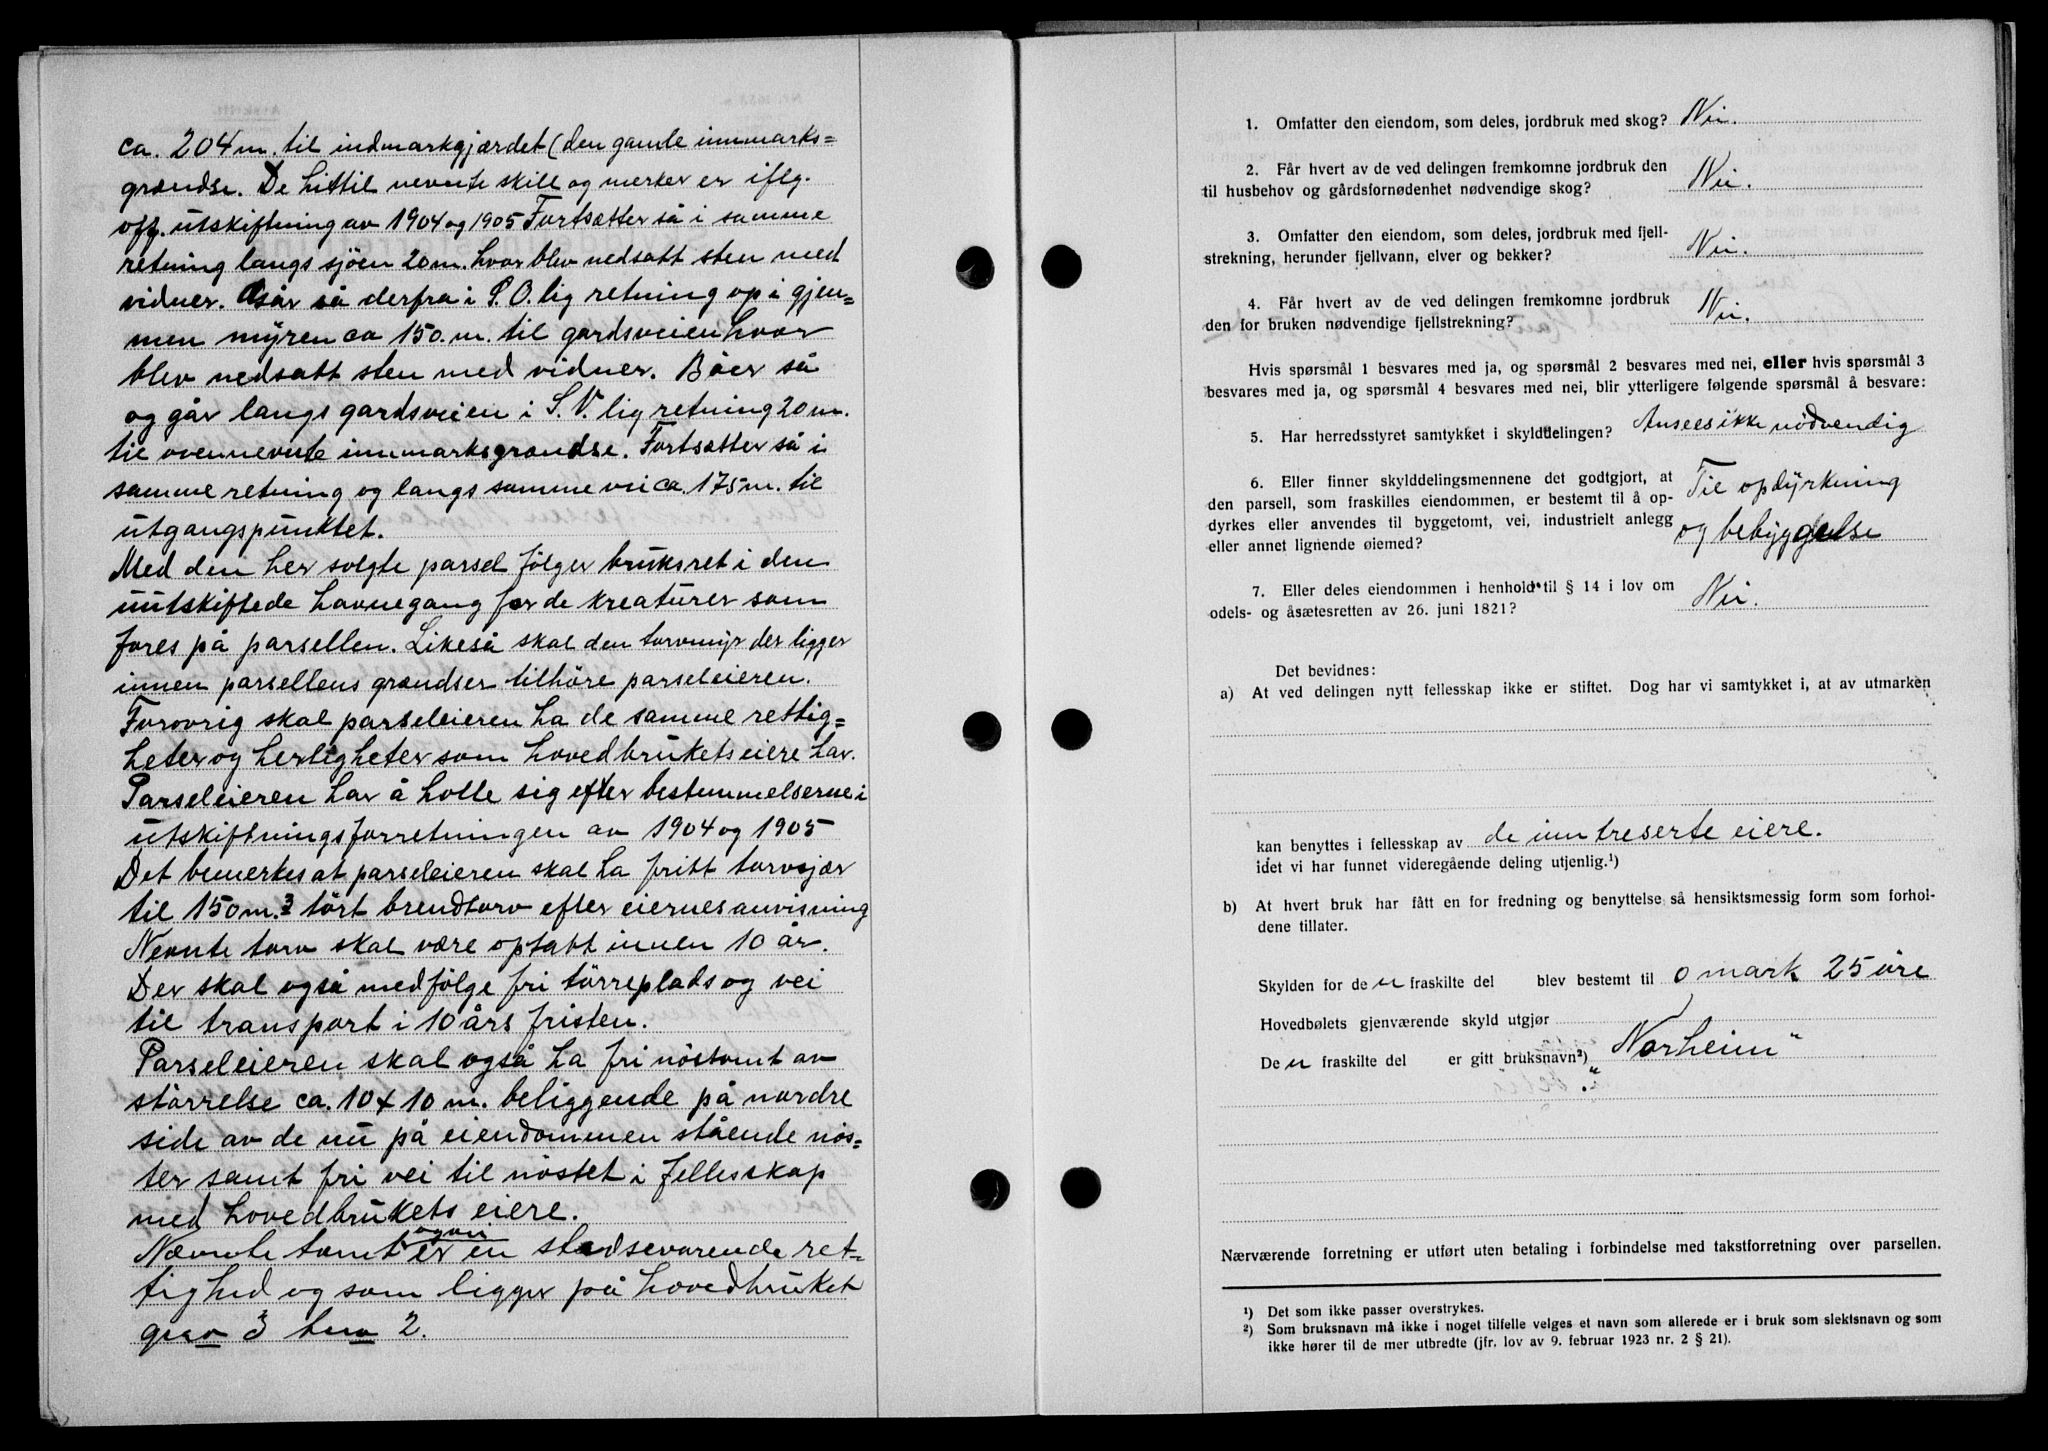 ca. 204 m. til indmarkgjærdet (den gamle innmarks=
grændse. De hittil nevnte skill og merker er iflg.
off. utskiftning av 1904 og 1905 Fortsætter så i samme
retning langs sjöen 20 m. hvor blev nedsatt sten med
vidner. Går så derfra i S.O. lig retning op i gjen=
men myren ca 150. m. til gardsveien hvor
blev nedsatt sten med vidner. Böier så
og går langs gardsveien i S.V. lig retning 20 m.
til ovennevnte innmarksgrændse. Fortsætter så i
samme retning og langs samme vei ca. 175 m. til
utgangspunktet.
Med den her solgte parsel fölger bruksret i den
uutskiftede havnegang for de kreaturer som
fores på parsellen. Likeså skal den torvmyr der ligger
innen parsellens grændser tilhöre parseleieren.
Forövrig skal parseleieren ha de samme rettig=
heter og herligheter som hovedbrukets eiere har.
Parseleieren har å holle sig efter bestemmelserne i
utskiftningsforretningen av 1904 og 1905
Det bemerkes at parseleieren skal ha fritt torvsjær
til 150 m.3 tört brendtorv efter eiernes anvisning
Nevnte torv skal være optatt innen 10 år.
Der skal også medfölge fri törreplads og vei
til transport i 10 års fristen.
Parseleieren skal også ha fri nöstomt av
störrelse ca. 10 x 10 m. beliggende på nordre
side av de nu på eiendommen stående nös=
ter samt fri vei til nöstet i fellesskap
med hovedbrukets eiere.
Nævnte tomt er en stedsevarende ret=
tighed og som ligger på hovedbruket
gnr 3 bnr 2.
1. Omfatter den eiendom, som deles, jordbruk med skog? Nei.
2. Får hvert av de ved delingen fremkomne jordbruk den
til husbehov og gårdsfornødenhet nødvendige skog? Nei.
3. Omfatter den eiendom, som deles, jordbruk med fjell-
strekning, herunder fjellvann, elver og bekker? Nei.
4. Får hvert av de ved delingen fremkomne jordbruk
den for bruken nødvendige fjellstrekning? Nei.
Hvis spørsmål 1 besvares med ja, og spørsmål 2 besvares med nei, eller hvis spørsmål 3
besvares med ja, og spørsmål 4 besvares med nei, blir ytterligere følgende spørsmål å besvare:
5. Har herredsstyret samtykket i skylddelingen? Ansees ikke nödvendig
6. Eller finner skylddelingsmennene det godtgjort, at
den parsell, som fraskilles eiendommen, er bestemt til å op-
dyrkes eller anvendes til byggetomt, vei, industrielt anlegg
eller annet lignende øiemed? Til opdyrkning
og bebyggelse
7. Eller deles eiendommen i henhold til § 14 i lov om
odels- og åsætesretten av 26. juni 1821? Nei.
Det bevidnes:
a) At ved delingen nytt fellesskap ikke er stiftet. Dog har vi samtykket i, at av utmarken
kan benyttes i fellesskap av de inntreserte eiere.
idet vi har funnet videregående deling utjenlig.¹)
b) At hvert bruk har fått en for fredning og benyttelse så hensiktsmessig form som forhol-
dene tillater.
Skylden for den fraskilte del blev bestemt til 0 mark 25 öre
Hovedbølets gjenværende skyld utgjør
Den fraskilte del er gitt bruksnavn²) „Norheim"
Nærværende forretning er utført uten betaling i forbindelse med takstforretning over parsellen.
¹) Det som ikke passer overstrykes.
²) Som bruksnavn må ikke i noget tilfelle velges et navn som allerede er i bruk som slektsnavn og som
ikke hører til de mer utbredte (jfr. lov av 9. februar 1923 nr. 2 § 21).